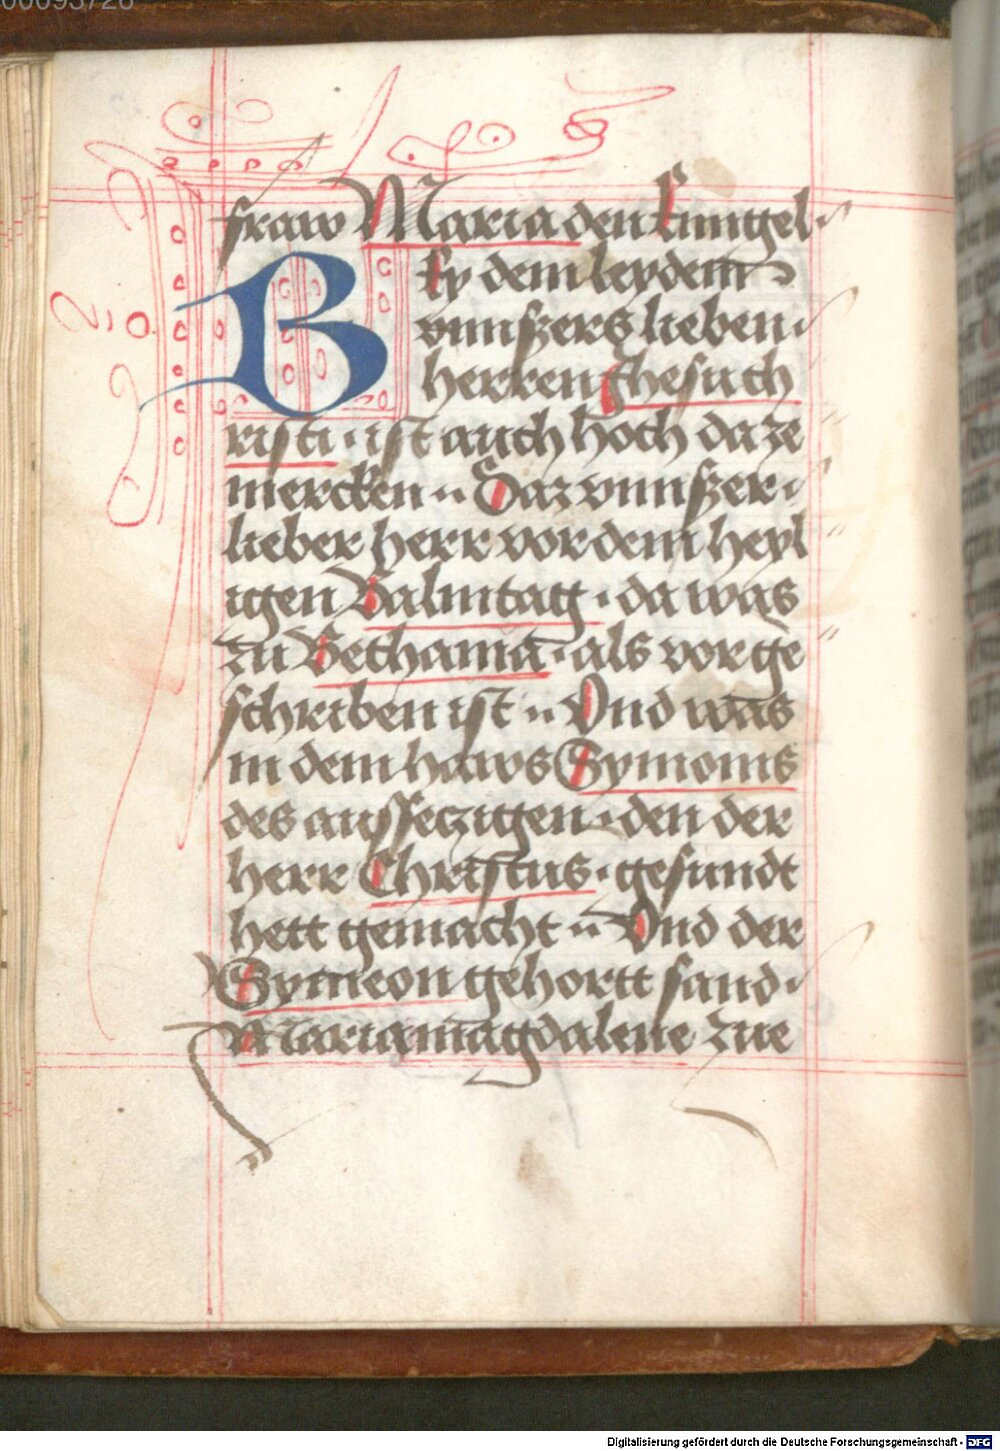 00093726
fraw Maria den kunigel.
By dem leydenn
vnnszers lieben.
herren Jhesu ch
risti. ist auch hoch da ze
mercken.. Daz vnnszer.
lieber herr vor dem heyl
igen Balmtag. da was
zu Bethania. als vor ge
schriben ist.. Vnd was
in dem haws Symonis
des ausseczigen. den der
herr Christus. gesundt
hett gemacht.. Vnd der
Symeon gehortt sand.
Maria magdalene zue
Digitalisierung gefördert durch die Deutsche Forschungsgemeinschaft - DFG